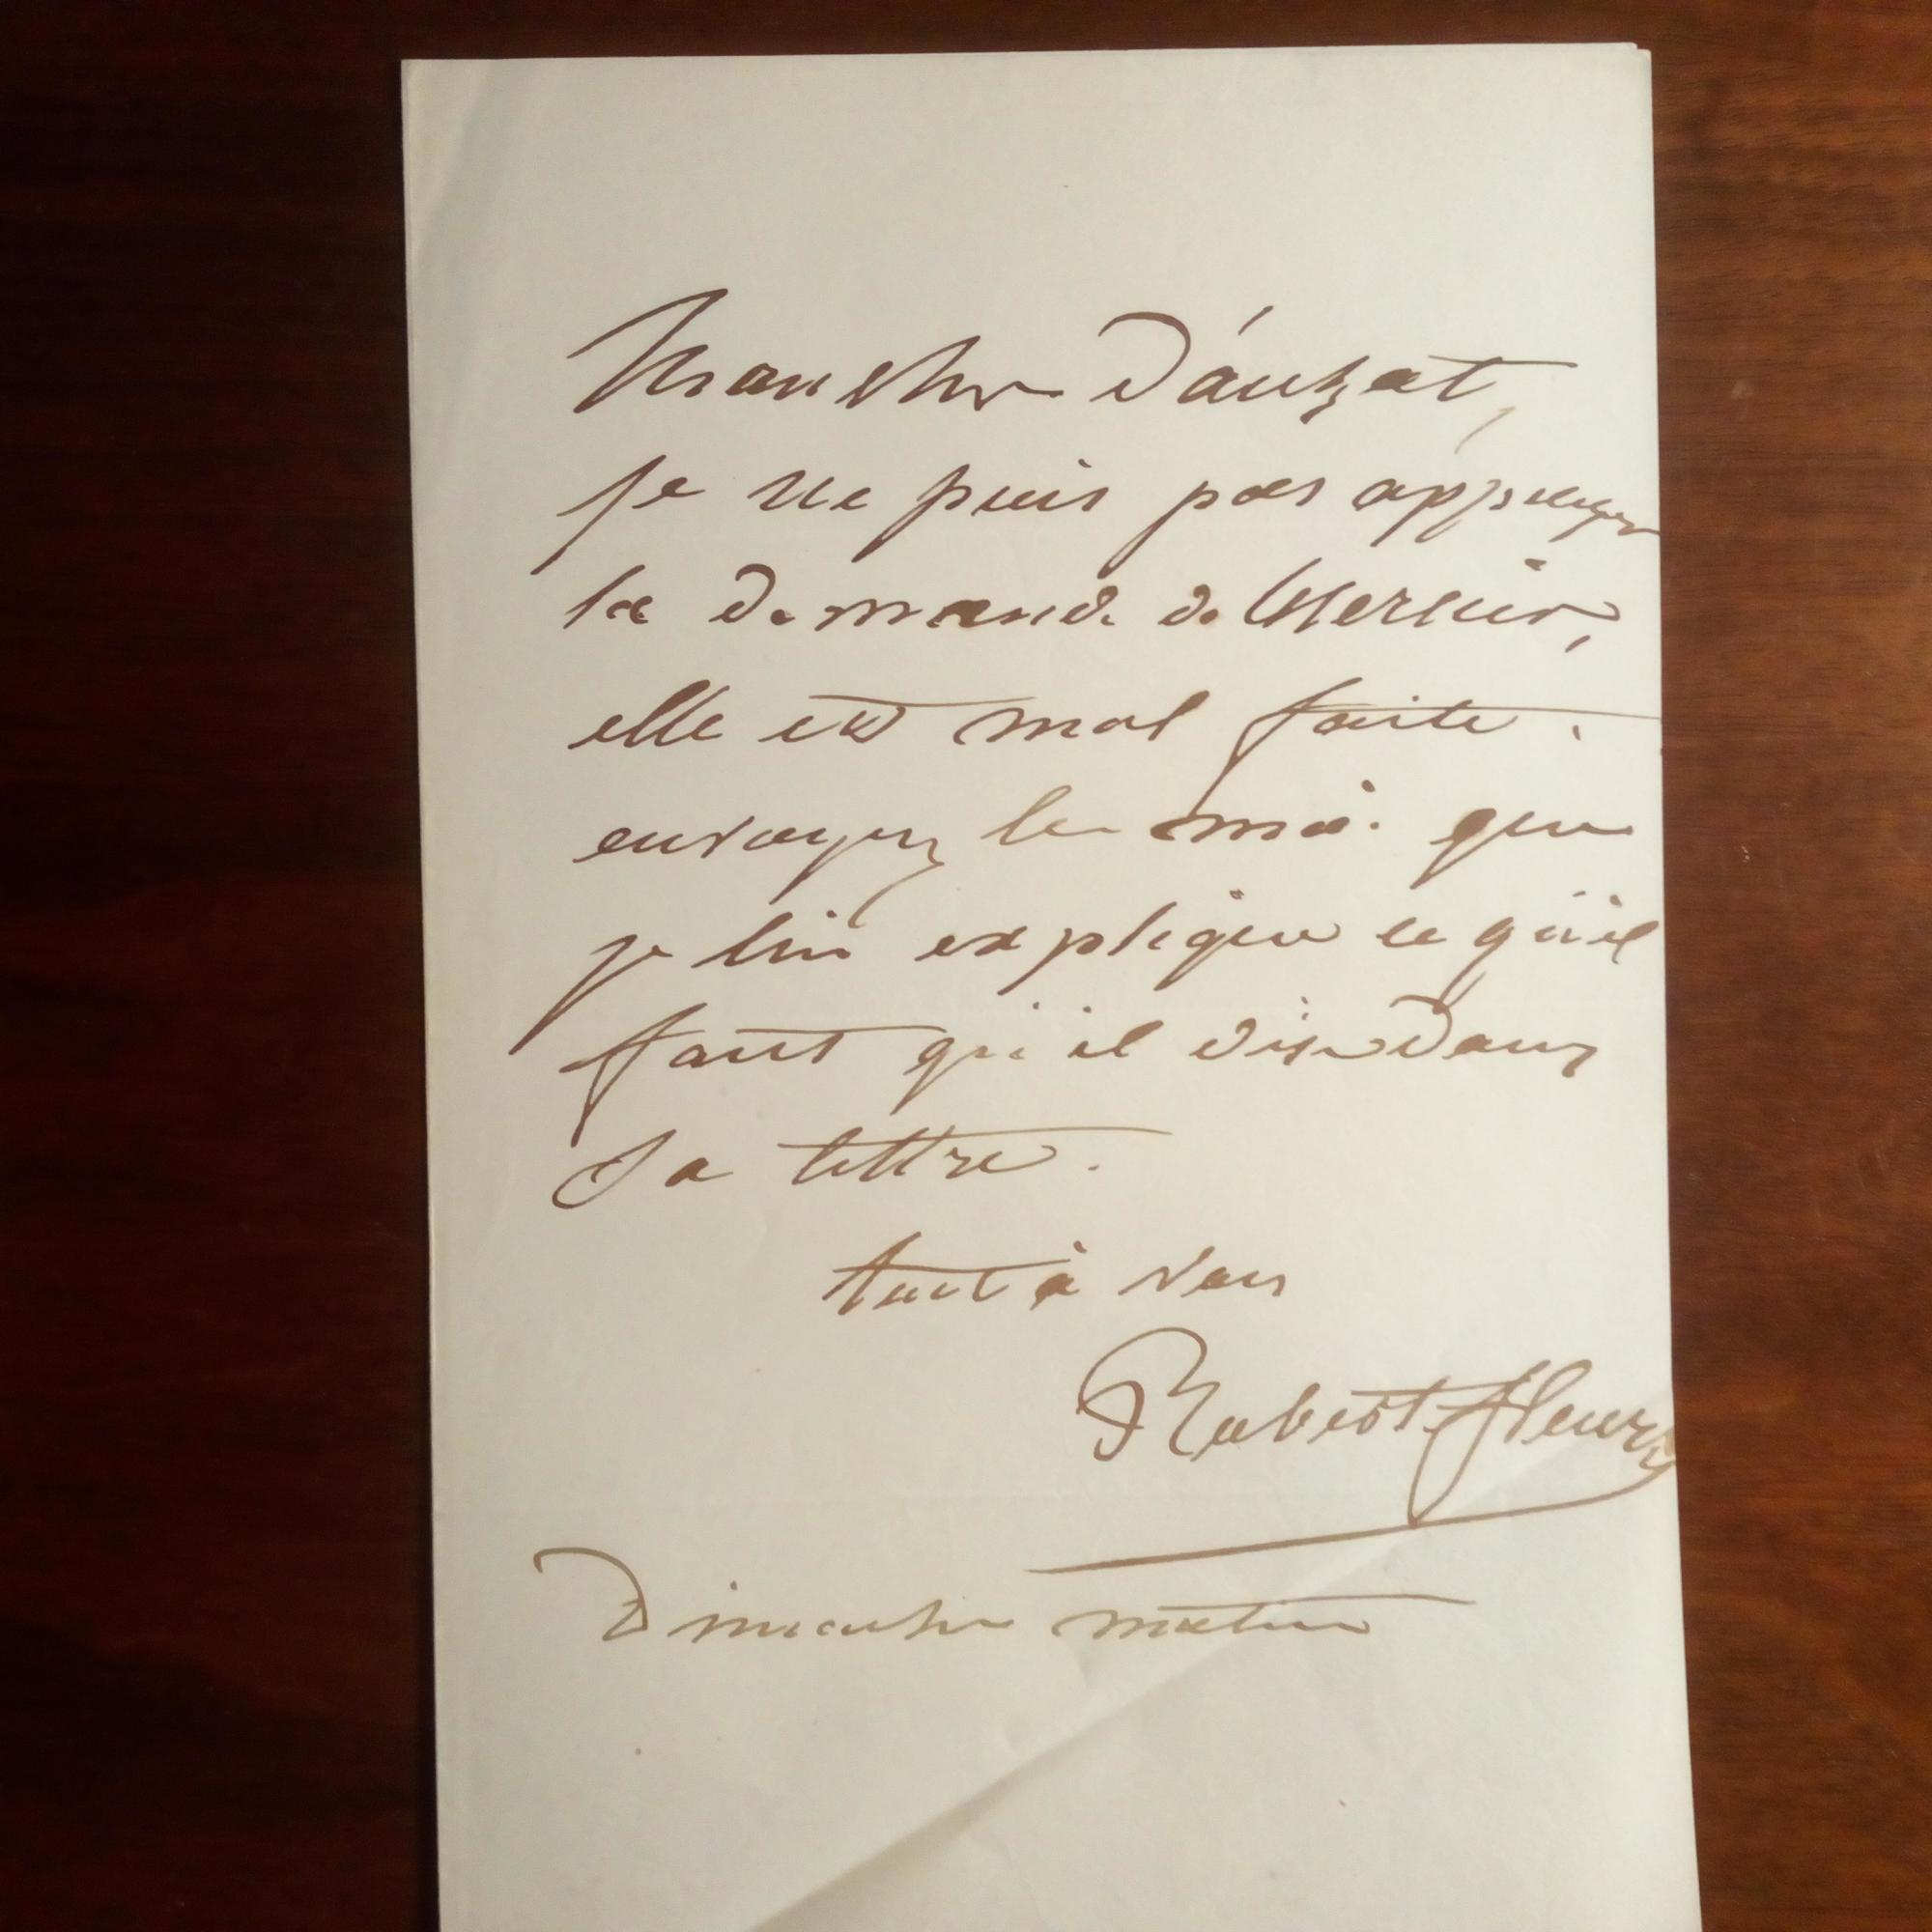 Mon cher Dauzat,
je ne puis pas appuyer
la demande de Mercier,
elle est mal faite.
envoyez le moi que
je lui explique ce qu'il
faut qu'il dise dans
sa lettre.
tout à vous
Robert-fleury
Dimanche matin